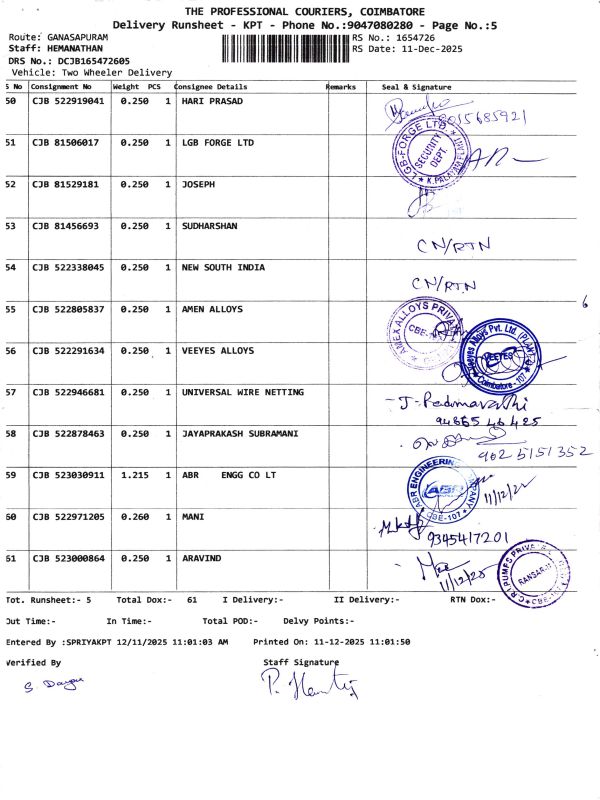 THE PROFESSIONAL COURIERS, COIMBATORE
Delivery Runsheet - KPT - Phone No.:9047080280 - Page No.:5
Route: GANASAPURAM RS No.: 1654726
Staff: HEMANATHAN RS Date: 11-Dec-2025
DRS No.: DCJB165472605
Vehicle: Two Wheeler Delivery
S No Consignment No Weight PCS Consignee Details Remarks Seal & Signature
50 CJB 522919041 0.250 1 HARI PRASAD
8015685921
51 CJB 81506017 0.250 1 LGB FORGE LTD
LGB-FORGE LTD. SECURITY DEPT.
52 CJB 81529181 0.250 1 JOSEPH
53 CJB 81456693 0.250 1 SUDHARSHAN
CN/RTN
54 CJB 522338045 0.250 1 NEW SOUTH INDIA
CN/RTN
6
55 CJB 522805837 0.250 1 AMEN ALLOYS
AMEX ALLOYS PRIVA
56 CJB 522291634 0.250 1 VEEYES ALLOYS
Veeyes Alloys Pvt. Ltd. VEEYES Coimbatore - 107
57 CJB 522946681 0.250 1 UNIVERSAL WIRE NETTING
J-Padmavathi
94865 46 425
58 CJB 522878463 0.250 1 JAYAPRAKASH SUBRAMANI
9025151352
59 CJB 523030911 1.215 1 ABR ENGG CO LT
ABR ENGINEERING COMPANY ABR CBE-107
11/12/25
60 CJB 522971205 0.260 1 MANI
9345417201
61 CJB 523000864 0.250 1 ARAVIND
11/12/25
C.R.I PUMPS PRIVA
Tot. Runsheet:- 5 Total Dox:- 61 I Delivery:- II Delivery:- RTN Dox:-
Out Time:- In Time:- Total POD:- Delvy Points:-
Entered By :SPRIYAKPT 12/11/2025 11:01:03 AM Printed On: 11-12-2025 11:01:50
Verified By Staff Signature